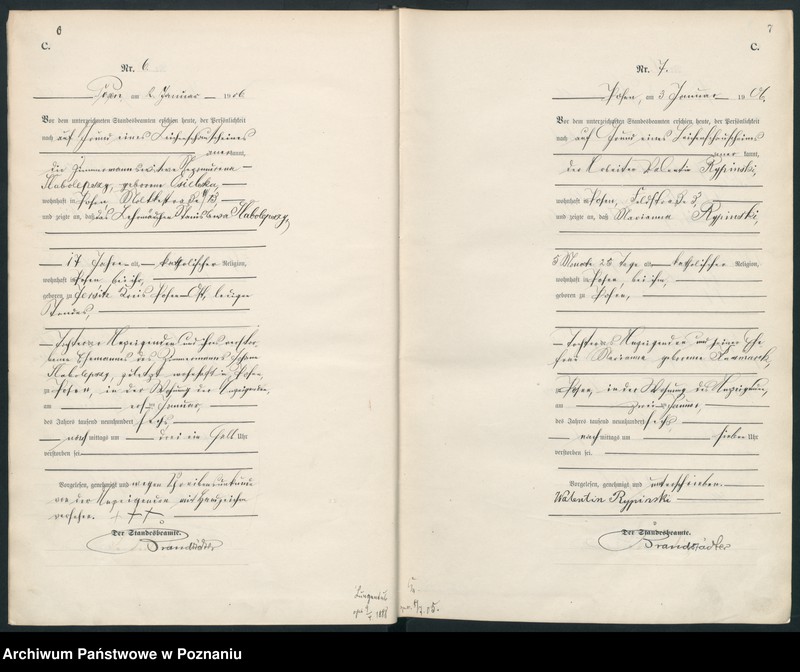 6
C.
Nr. 6
Posen am 2 Januar 1906
Vor dem unterzeichneten Standesbeamten erschien heute, der Persönlichkeit
nach auf Grund eines Leichenschauscheines
anerkannt,
die Zimmermannswitwe
geborene
wohnhaft in Posen
und zeigte an, daß das Stanislawa
17 Jahre alt, katholischer Religion,
wohnhaft in Posen bei ihr,
geboren zu Jersitz Kreis Posen Ost, ledigen
Standes,
Tochter der Anzeigenden und ihres verstor-
benen Ehemannes des Zimmermanns
zuletzt wohnhaft in Posen,
zu Posen, in der Wohnung der Anzeigenden,
am ersten Januar
des Jahres tausend neunhundert sechs
nach mittags um drei ein halb Uhr
verstorben sei.
Vorgelesen, genehmigt und wegen Schreibensunkunde
von der Anzeigenden mit Handzeichen
versehen. + + +
Der Standesbeamte.
Brandstädter
7
C.
Nr. 7.
Posen, am 3 Januar 1906.
Vor dem unterzeichneten Standesbeamten erschien heute, der Persönlichkeit
nach auf Grund eines Leichenschauscheins
kannt,
der Arbeiter Valentin Rypinski,
wohnhaft in Posen, Feldstraße
und zeigte an, daß Marianna Rypinski,
Monate Tage alt, katholischer Religion,
wohnhaft in Posen, bei ihm,
geboren zu Posen,
Tochter des Anzeigenden und seiner Ehe-
frau Marianna geborenen
zu Posen, in der Wohnung des Anzeigenden,
am zwei Januar,
des Jahres tausend neunhundert sechs
nach mittags um sieben Uhr
verstorben sei.
Vorgelesen, genehmigt und unterschrieben.
Walentin Rypinski
Der Standesbeamte.
Brandstädter
Archiwum Państwowe w Poznaniu